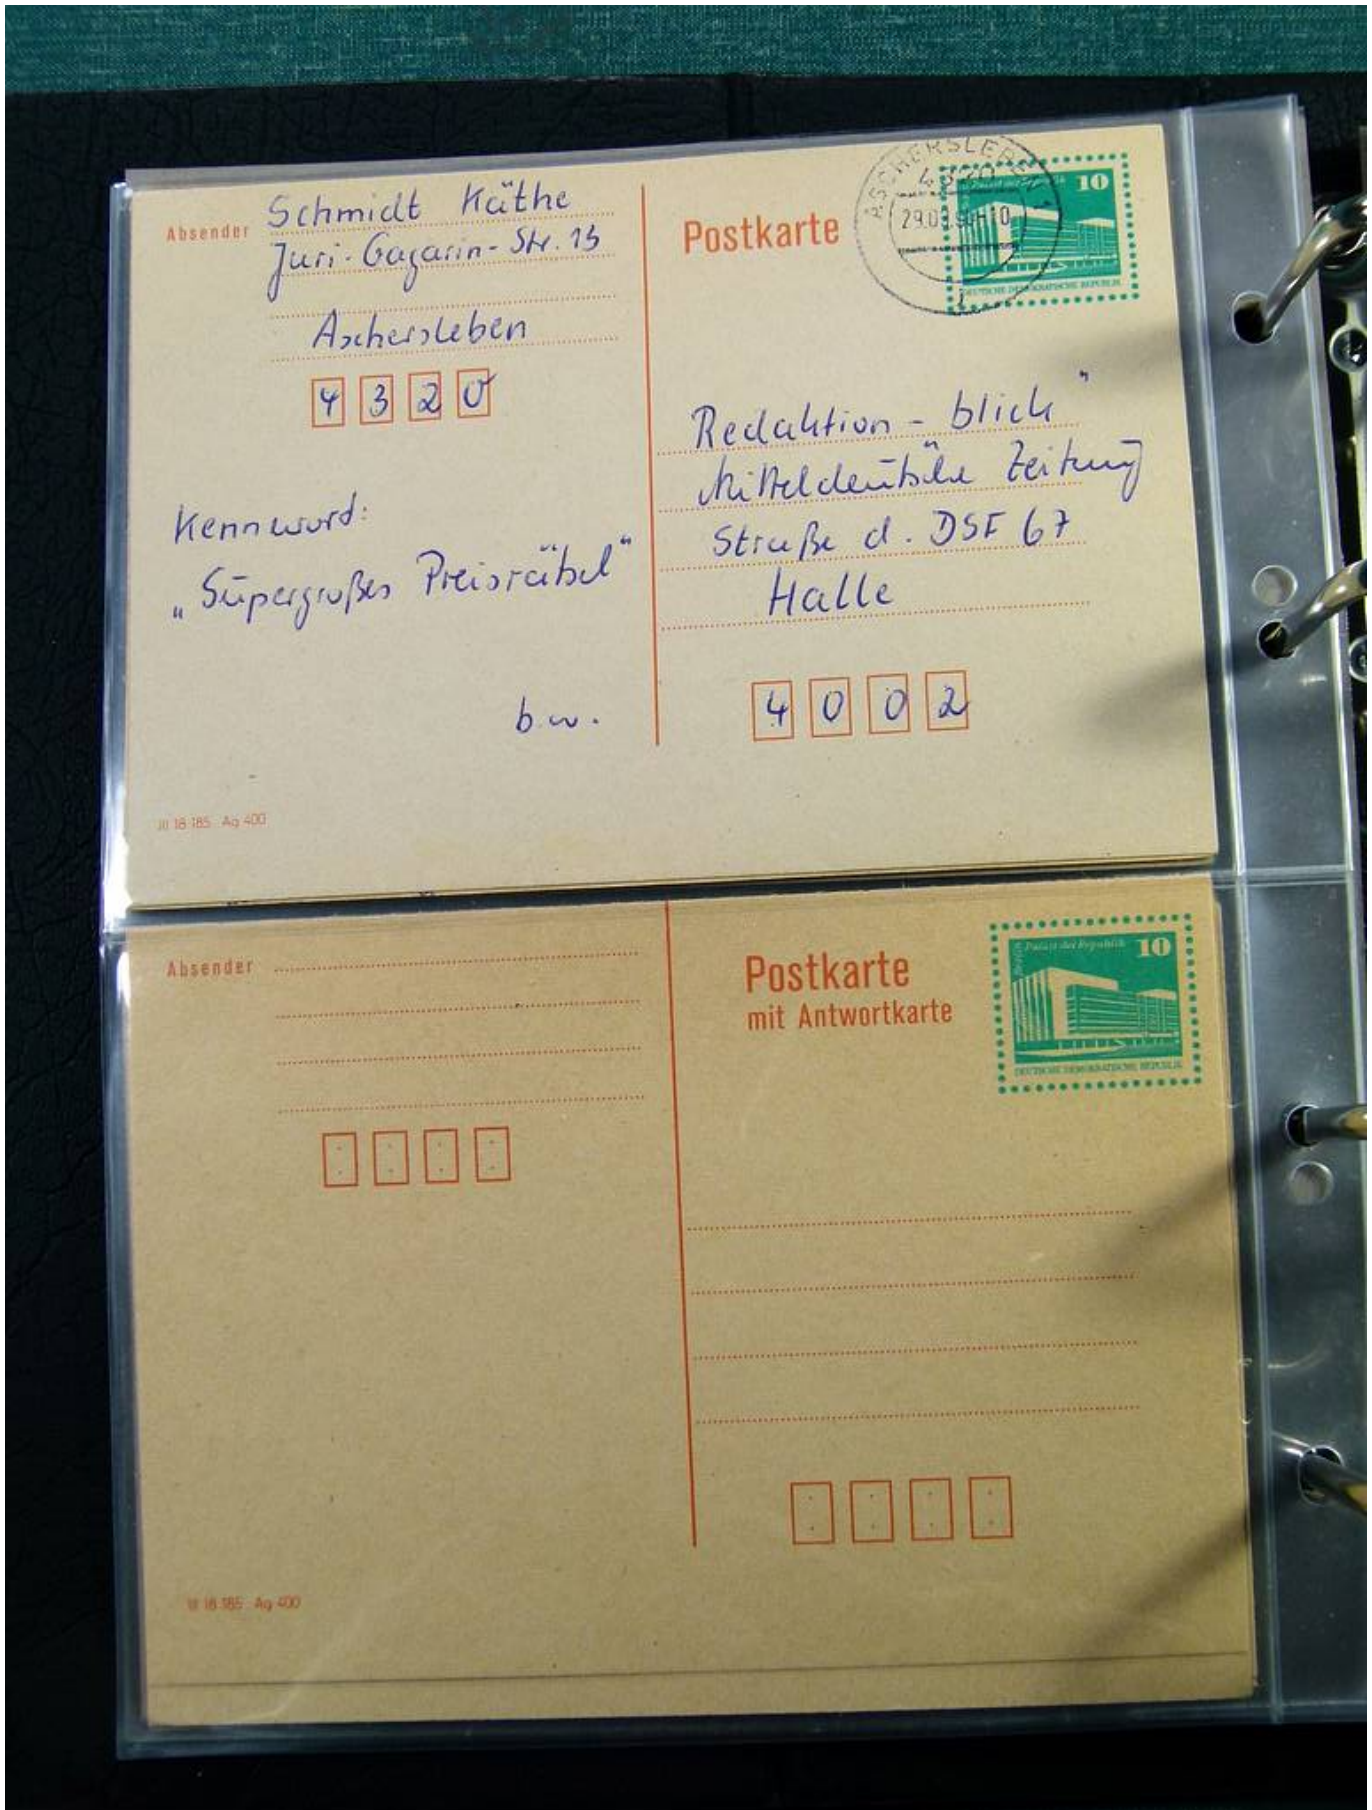 Absender Schmidt Käthe
Juri-Gagarin-Str. 13
Aschersleben
4 3 2 0
Kennword:
„Supergroßes Preisrätsel“
b.w.
III 18 185 Ag 400
Postkarte
ASCHERSLEBEN 1
4320
29.03.90-10
10
DEUTSCHE DEMOKRATISCHE REPUBLIK
Redaktion - blick"
Mitteldeutsche Zeitung
Straße d. DSF 67
Halle
4 0 0 2
Absender
Postkarte
mit Antwortkarte
Berlin Palast der Republik 10
DEUTSCHE DEMOKRATISCHE REPUBLIK
III 18 185 Ag 400